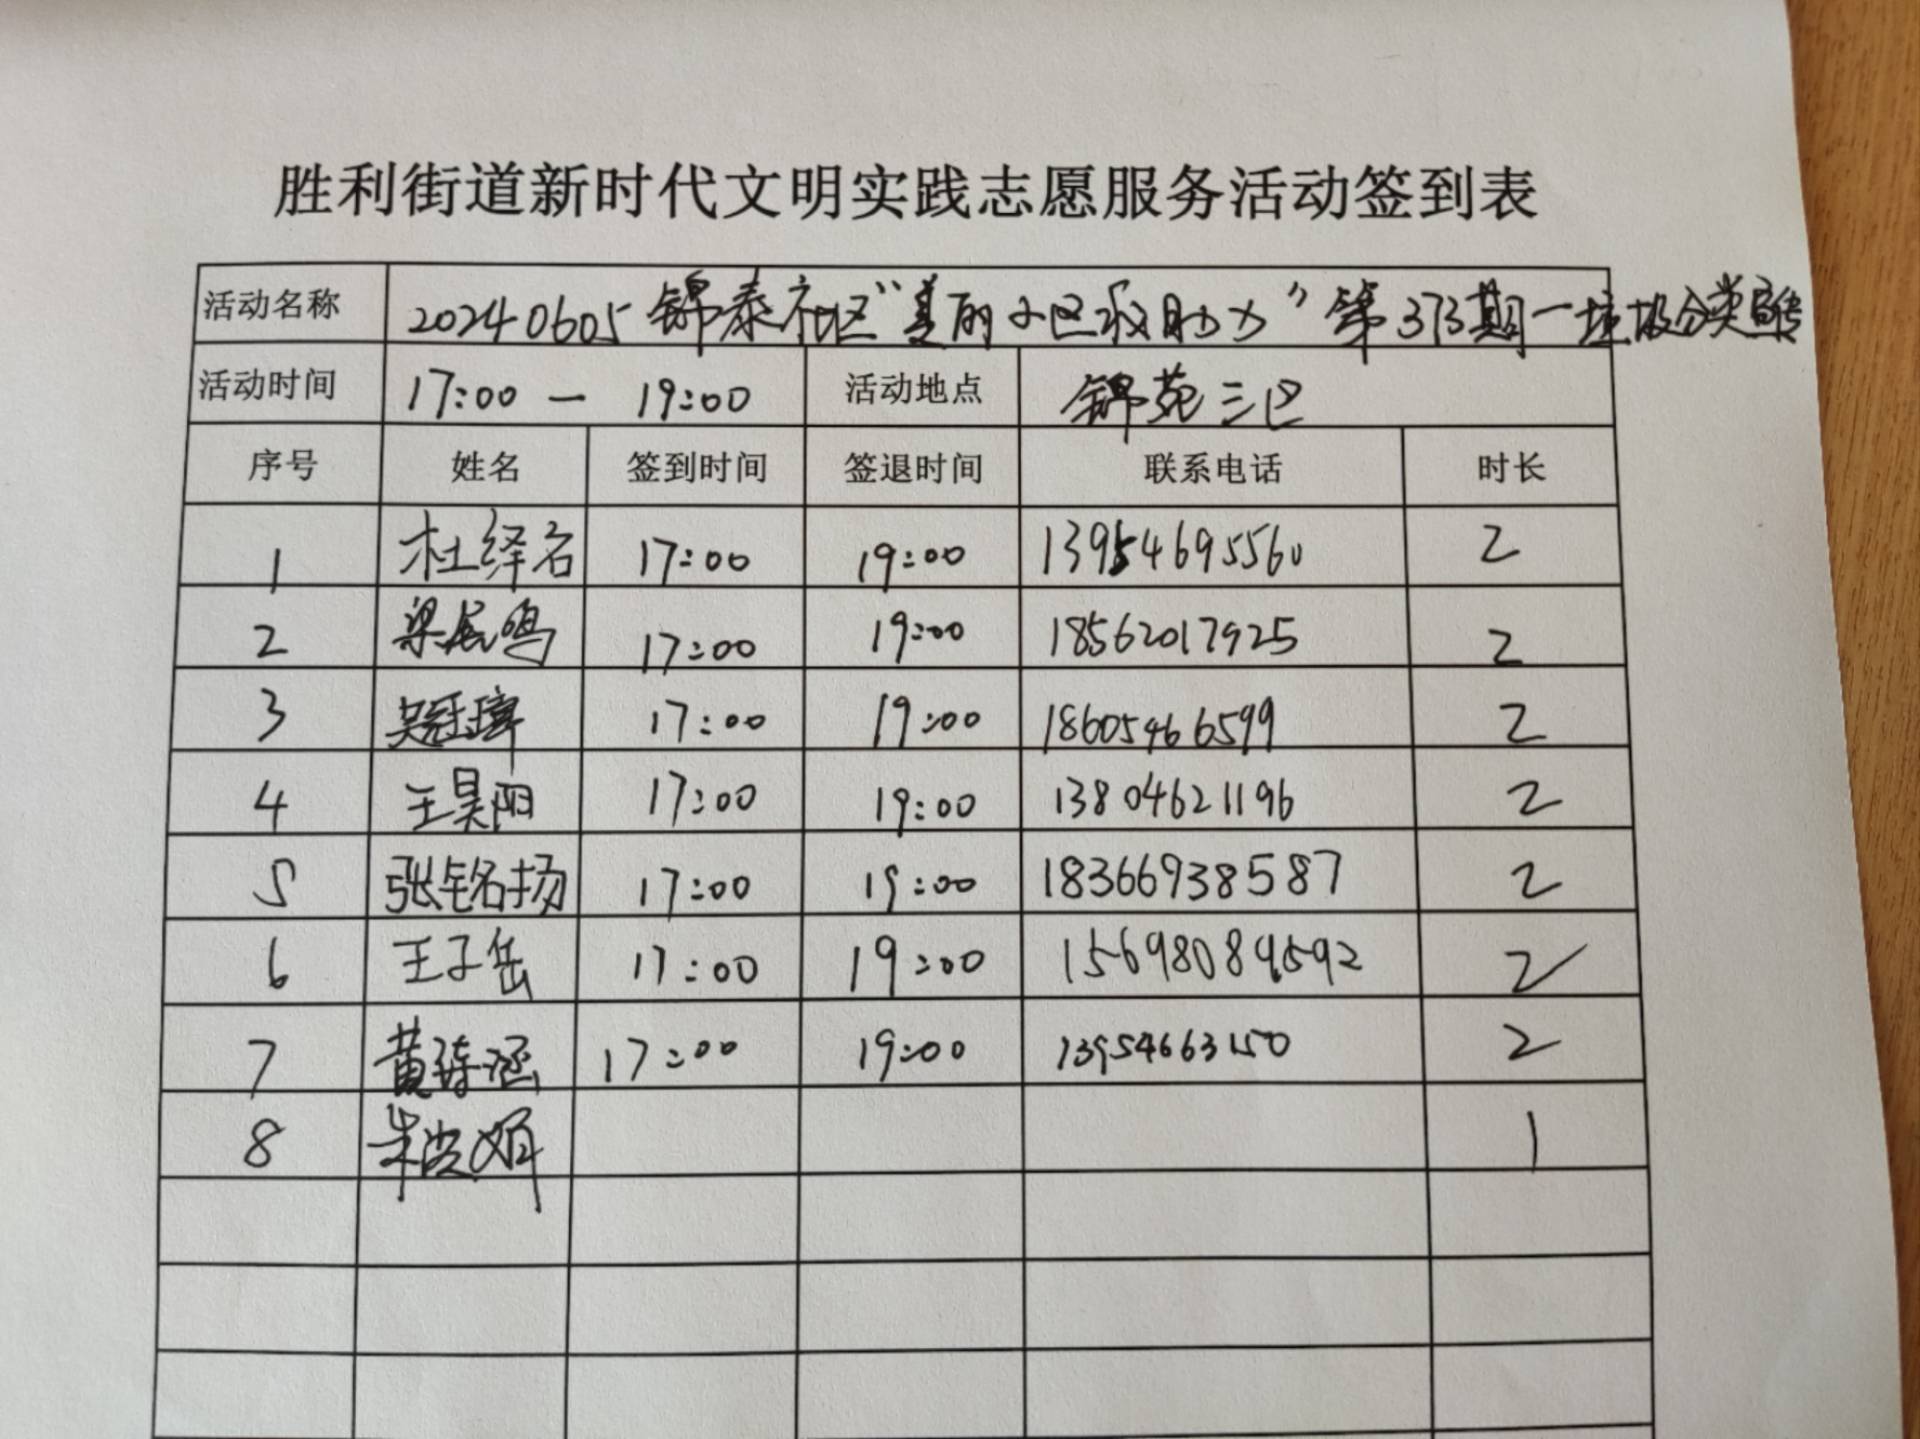 胜利街道新时代文明实践志愿服务活动签到表
活动名称 20240605锦泰社区"美丽小区我助力"第373期—垃圾分类宣传
活动时间 17:00 — 19:00 活动地点 锦苑三区
序号 姓名 签到时间 签退时间 联系电话 时长
1 杜绎名 17:00 19:00 13954695560 2
2 梁展鸣 17:00 19:00 18562017925 2
3 吴冠璋 17:00 19:00 18605466599 2
4 王昊阳 17:00 19:00 13804621196 2
5 张铭扬 17:00 19:00 18366938587 2
6 王子岳 17:00 19:00 15698089592 2
7 17:00 19:00 13954663150 2
8 1